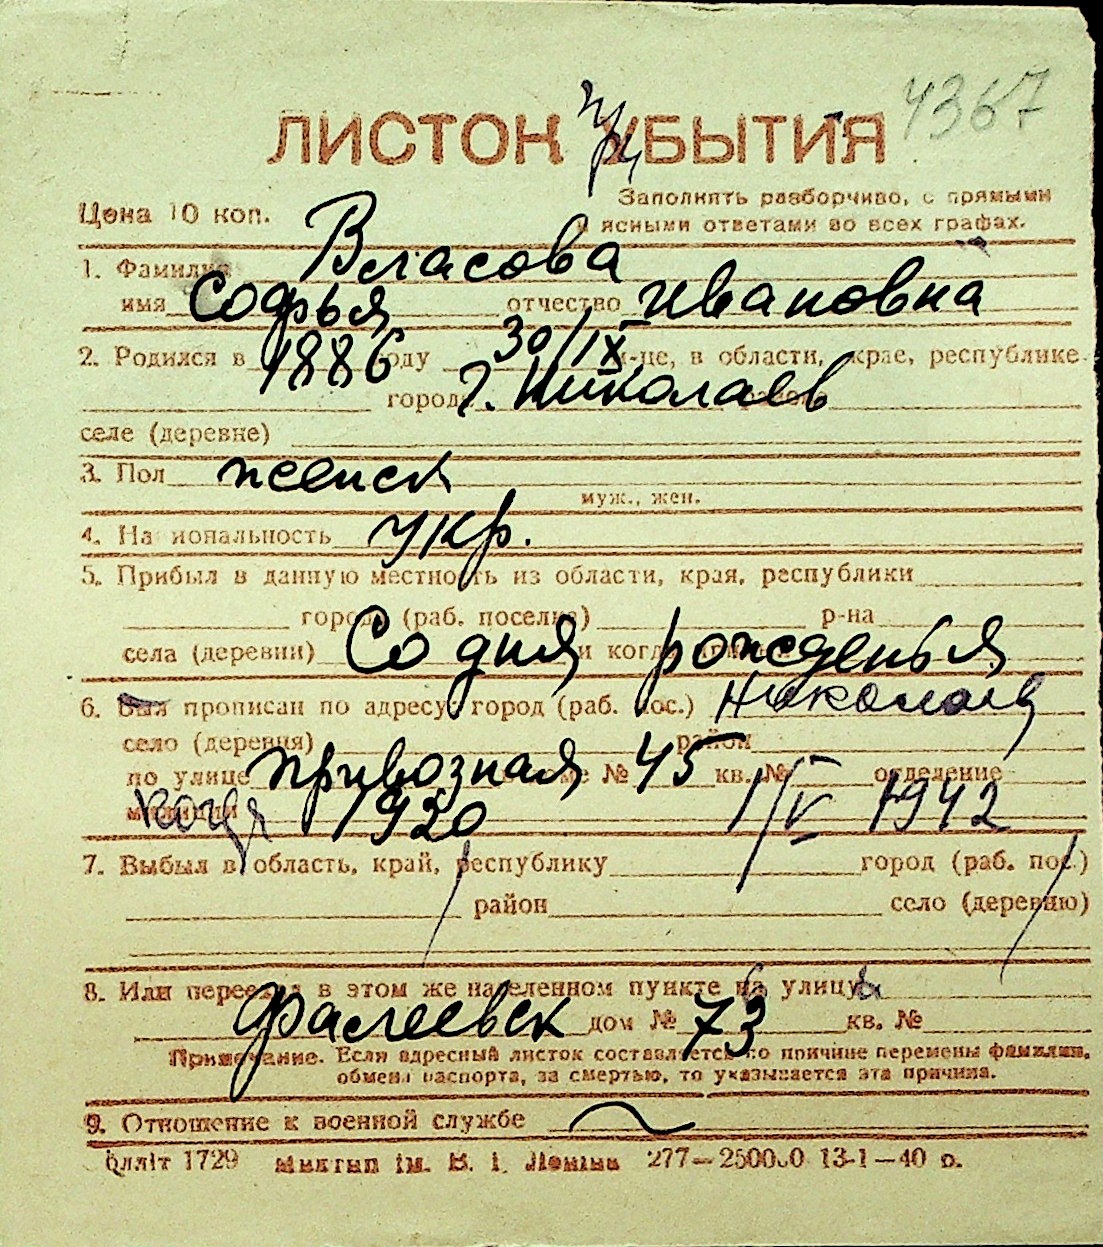 4367
ЛИСТОК УБЫТИЯ
при
Цена 10 коп.
Заполнять разборчиво, с прямыми
и ясными ответами во всех графах.
1. Фамилия Власова
имя Софья отчество Ивановна
2. Родился в 1886 году 30/IX м-це, в области, крае, республике
городе г. Николаев районе
селе (деревне)
3. Пол женск
муж., жен.
4. Национальность укр.
5. Прибыл в данную местность из области, края, республики
города (раб. поселка) р-на
села (деревни) и когда Со дня рожденья
6. Был прописан по адресу: город (раб. пос.) Николаев
село (деревня) район
по улице Привозная доме № 45 кв. № отделение
милиции когда 1920 1/V 1942
7. Выбыл в область, край, республику город (раб. пос.)
район село (деревню)
8. Или переехал в этом же населенном пункте на улицу
Фалеевск дом № 73 кв. №
Примечание. Если адресный листок составляется по причине перемены фамилии,
обмена паспорта, за смертью, то указывается эта причина.
9. Отношение к военной службе ~
1729 ім. В. І. Леніна 277—250000 13-1—40 р.